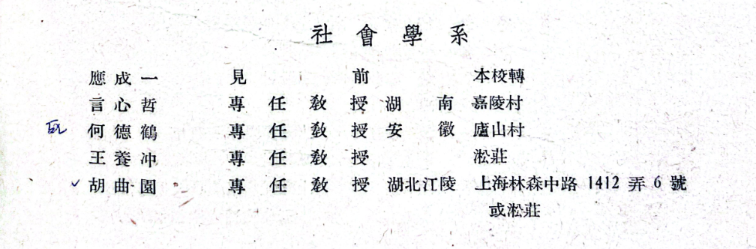 社會學系
應成一 見前 本校轉
言心哲 專任教授 湖南 嘉陵村
何德鶴 專任教授 安徽 廬山村
王養冲 專任教授 淞莊
胡曲園 專任教授 湖北江陵 上海林森中路 1412 弄 6 號
或淞莊